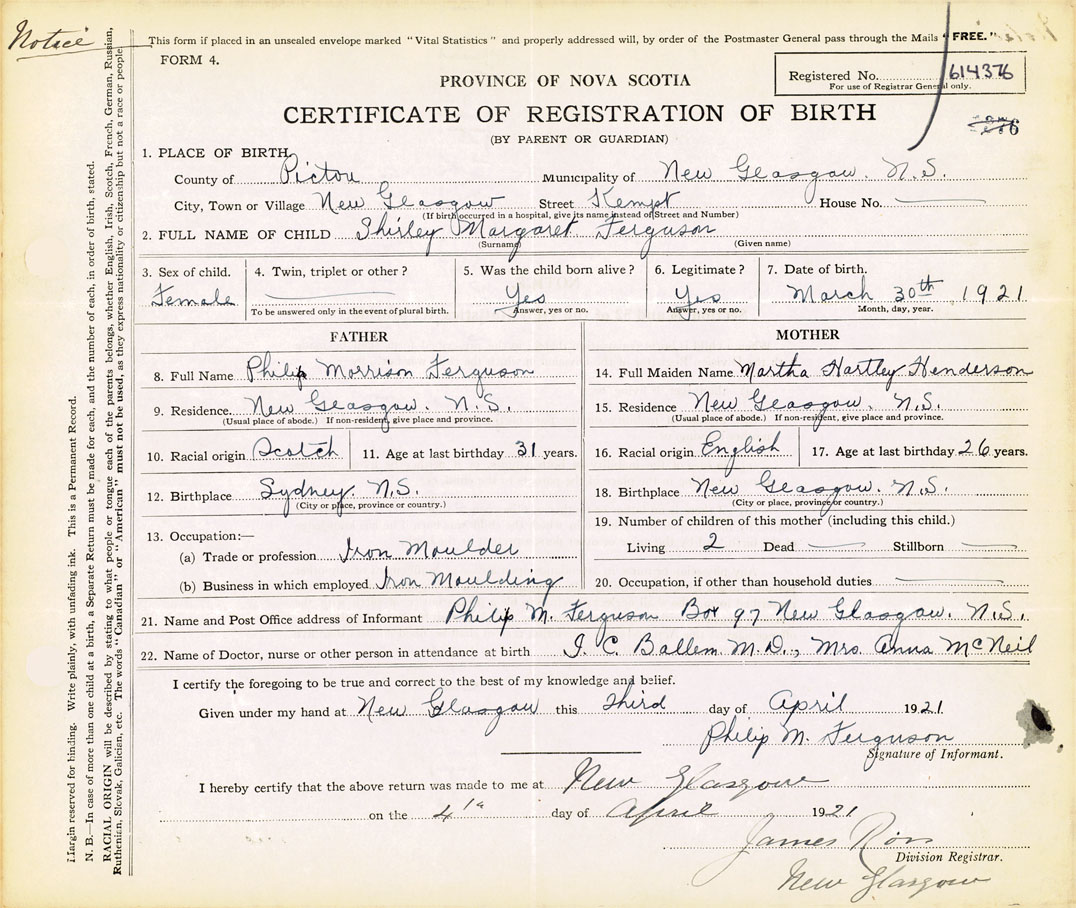 Notice
This form if placed in an unsealed envelope marked "Vital Statistics" and properly addressed will, by order of the Postmaster General pass through the Mails "FREE."
FORM 4.
Registered No. 614376
For use of Registrar General only.
PROVINCE OF NOVA SCOTIA
CERTIFICATE OF REGISTRATION OF BIRTH
(BY PARENT OR GUARDIAN)
1. PLACE OF BIRTH
County of Pictou Municipality of New Glasgow. N.S.
City, Town or Village New Glasgow Street Kempt House No.
(If birth occurred in a hospital, give its name instead of Street and Number)
2. FULL NAME OF CHILD Shirley Margaret Ferguson
(Surname) (Given name)
3. Sex of child. 4. Twin, triplet or other? 5. Was the child born alive? 6. Legitimate? 7. Date of birth.
Female Yes Yes March 30th, 1921
To be answered only in the event of plural birth. Answer, yes or no. Answer, yes or no. Month, day, year.
FATHER
8. Full Name Philip Morrison Ferguson
9. Residence. New Glasgow. N.S.
(Usual place of abode.) If non-resident, give place and province.
10. Racial origin Scotch 11. Age at last birthday 31 years.
12. Birthplace Sydney. N.S.
(City or place, province or country.)
13. Occupation:—
(a) Trade or profession Iron Moulder
(b) Business in which employed Iron Moulding
MOTHER
14. Full Maiden Name Martha Hartley Henderson
15. Residence New Glasgow. N.S.
(Usual place of abode.) If non-resident, give place and province.
16. Racial origin English 17. Age at last birthday 26 years.
18. Birthplace New Glasgow. N.S.
(City or place, province or country.)
19. Number of children of this mother (including this child.)
Living 2 Dead Stillborn
20. Occupation, if other than household duties
21. Name and Post Office address of Informant Philip M. Ferguson Box 97 New Glasgow. N.S.
22. Name of Doctor, nurse or other person in attendance at birth J. C. Ballem. M.D., Mrs. Anna McNeil
I certify the foregoing to be true and correct to the best of my knowledge and belief.
Given under my hand at New Glasgow this Third day of April 1921.
Philip M. Ferguson
Signature of Informant.
I hereby certify that the above return was made to me at New Glasgow
on the 4th day of April 1921
James Ross
Division Registrar.
New Glasgow
Margin reserved for binding. Write plainly, with unfading ink. This is a Permanent Record.
N. B.—In case of more than one child at a birth, a Separate Return must be made for each, and the number of each, in order of birth, stated.
RACIAL ORIGIN will be described by stating to what people or tongue each of the parents belongs, whether English, Irish, Scotch, French, German, Russian,
Ruthenian, Slovak, Galician, etc. The words "Canadian" or "American" must not be used, as they express nationality or citizenship but not a race or people.